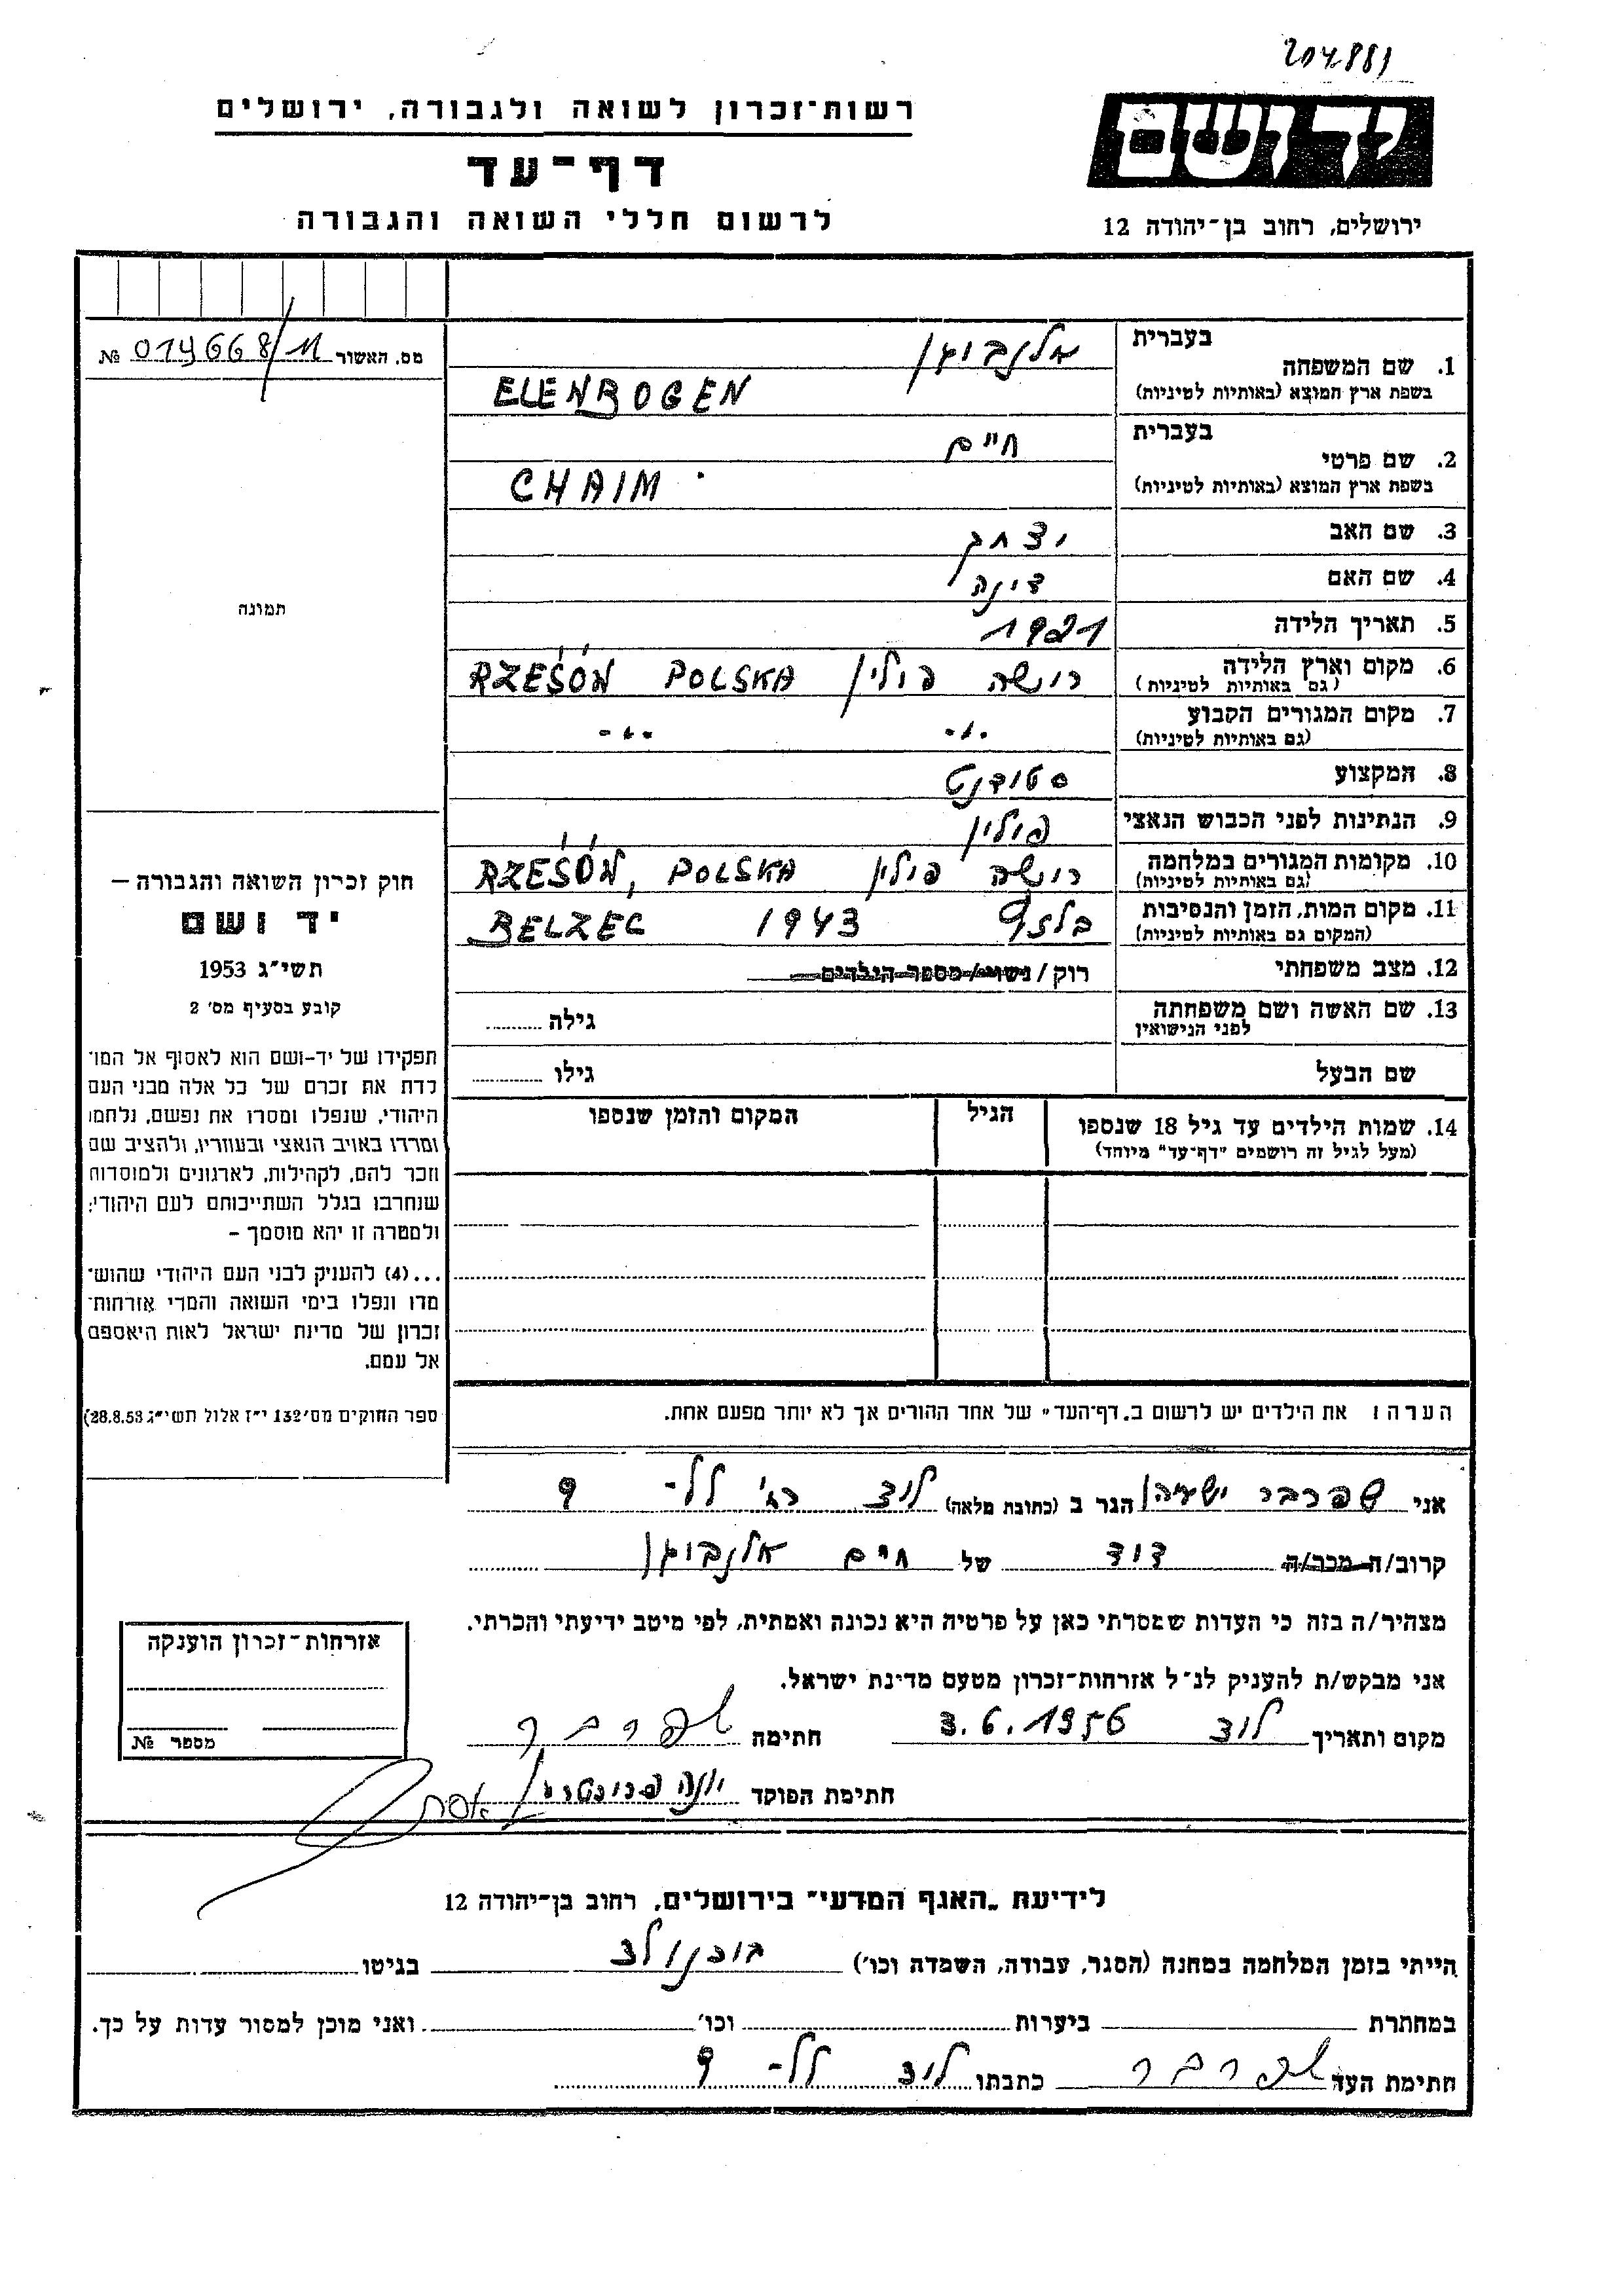 204881
יד ושם
ירושלים, רחוב בן־יהודה 12
רשות־זכרון לשואה ולגבורה, ירושלים
דף־עד
לרשום חללי השואה והגבורה
מס. האשור № 019668/11
בעברית אלנבוגן
1. שם המשפחה
בשפת ארץ המוצא (באותיות לטיניות) ELENBOGEN
בעברית חיים
2. שם פרטי
בשפת ארץ המוצא (באותיות לטיניות) CHAIM
3. שם האב יצחק
4. שם האם דינה
5. תאריך הלידה 1921
6. מקום וארץ הלידה רישה פולין RZEŚÓW POLSKA
(גם באותיות לטיניות)
7. מקום המגורים הקבוע -"- -"-
(גם באותיות לטיניות)
8. המקצוע סטודנט
9. הנתינות לפני הכבוש הנאצי פולין
10. מקומות המגורים במלחמה רישה פולין RZEŚÓW, POLSKA
(גם באותיות לטיניות)
11. מקום המות, הזמן והנסיבות בלזץ 1943 BELZEC
(המקום גם באותיות לטיניות)
12. מצב משפחתי רוק/נשוי/מספר הילדים
13. שם האשה ושם משפחתה גילה
לפני הנישואין
שם הבעל גילו
14. שמות הילדים עד גיל 18 שנספו הגיל המקום והזמן שנספו
(מעל לגיל זה רושמים "דף־עד" מיוחד)
הערה: את הילדים יש לרשום ב„דף־העד" של אחד ההורים אך לא יותר מפעם אחת.
תמונה
חוק זכרון השואה והגבורה –
יד ושם
תשי"ג 1953
קובע בסעיף מס' 2
תפקידו של יד-ושם הוא לאסוף אל המו־
לדת את זכרם של כל אלה מבני העם
היהודי, שנפלו ומסרו את נפשם, נלחמו
ומרדו באויב הנאצי ובעוזריו, ולהציב שם
וזכר להם, לקהילות, לארגונים ולמוסדות
שנחרבו בגלל השתייכותם לעם היהודי;
ולמטרה זו יהא מוסמך –
...(4) להעניק לבני העם היהודי שהוש־
מדו ונפלו בימי השואה והמרי אזרחות־
זכרון של מדינת ישראל לאות היאספם
אל עמם.
(ספר החוקים מס' 132 י"ז אלול תשי"ג 28.8.53)
אני שפרבר ישעיהו הגר ב (כתובת מלאה) לוד רח' לל- 9
קרוב/ה מכר/ה דוד של חיים אלנבוגן
מצהיר/ה בזה כי העדות שמסרתי כאן על פרטיה היא נכונה ואמתית, לפי מיטב ידיעתי והכרתי.
אני מבקש/ת להעניק לנ"ל אזרחות־זכרון מטעם מדינת ישראל.
מקום ותאריך לוד 3.6.1956 חתימה שפרבר
חתימת הפוקד יונה
אזרחות־זכרון הוענקה
מספר №
לידיעת „האגף המדעי" בירושלים, רחוב בן־יהודה 12
הייתי בזמן המלחמה במחנה (הסגר, עבודה, השמדה וכו') בוכנולד בגיטו
במחתרת ביערות וכו' ואני מוכן למסור עדות על כך.
חתימת העד שפרבר כתבתו לוד לל- 9